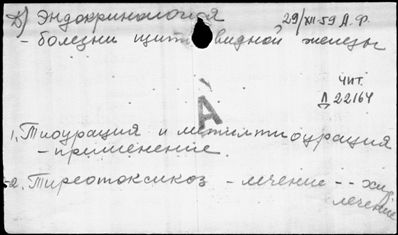 Д) Эндокринология 29/XII-59 А.Ф.
- болезни щитовидной железы
чит.
Д 22164
А
1. Тиоурация и метилтиоурация
- применение.
2. Тиреотоксикоз - лечение -- хир.
лечение